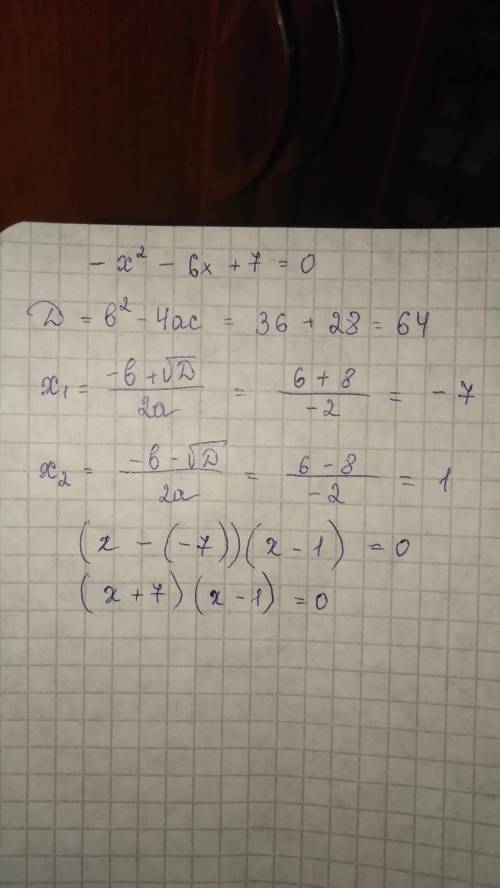 - x² - 6x + 7 = 0
D = в² - 4ac = 36 + 28 = 64
x₁ = (-в + √D)/(2a) = (6 + 8)/(-2) = - 7
x₂ = (-в - √D)/(2a) = (6 - 8)/(-2) = 1
(x - (-7))(x - 1) = 0
(x + 7)(x - 1) = 0